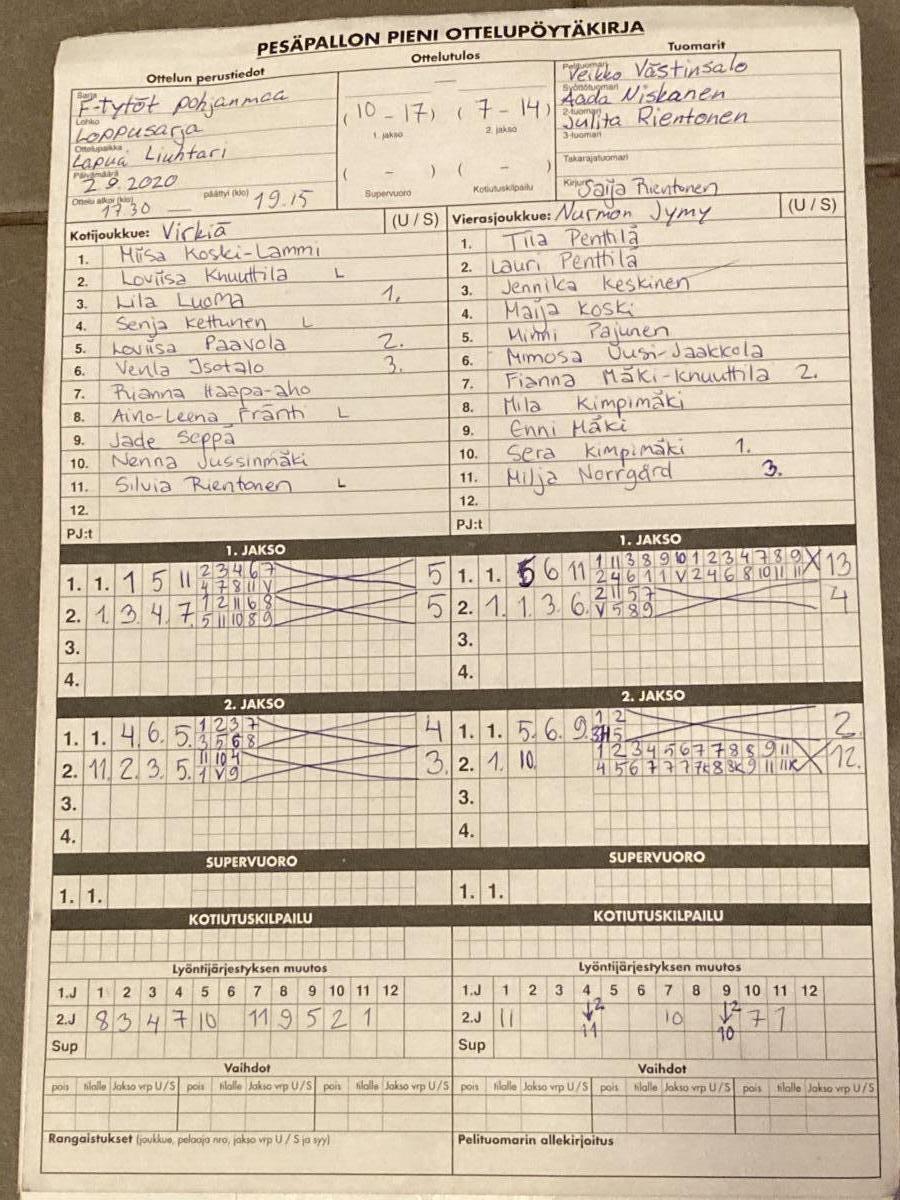 PESÄPALLON PIENI OTTELUPÖYTÄKIRJA
Ottelun perustiedot
Ottelutulos
Tuomarit
Sarja
F-tytöt pohjanmaa
Lohko
Loppusarja
Ottelupaikka
Lapua Liuhtari
Päivämäärä
2.9.2020
Ottelu alkoi (klo) 17.30 päättyi (klo) 19.15
(10 - 17) (7 - 14)
1. jakso 2. jakso
( - ) ( - )
Supervuoro Kotiutuskilpailu
Pelituomari
Veikko Västinsalo
Syöttötuomari
Aada Niskanen
2-tuomari
Julita Rientonen
3-tuomari
Takarajatuomari
Kirjuri Saija Rientonen
Kotijoukkue: Virkiä (U / S)
1. Miisa Koski-Lammi
2. Loviisa Knuuttila L
3. Lila Luoma 1.
4. Senja Kettunen L
5. Loviisa Paavola 2.
6. Venla Isotalo 3.
7. Rianna Haapa-aho
8. Aino-Leena Fränti L
9. Jade Seppä
10. Nenna Jussinmäki
11. Silvia Rientonen L
12.
PJ:t
Vierasjoukkue: Nurmon Jymy (U / S)
1. Tiia Penttilä
2. Lauri Penttilä
3. Jennika Keskinen
4. Maija Koski
5. Minni Pajunen
6. Mimosa Uusi-Jaakkola
7. Fianna Mäki-Knuuttila 2.
8. Mila Kimpimäki
9. Enni Mäki
10. Sera Kimpimäki 1.
11. Milja Norrgård 3.
12.
PJ:t
1. JAKSO
1. 1. 1 5 11 2 3 4 6 7 5
4 7 8 11 V
2. 1. 3. 4. 7. 1 2 11 6 8 5
5 11 10 8 9
3.
4.
1. JAKSO
1. 1. 5 6 11 1 11 3 8 9 10 1 2 3 4 7 8 9 X 13
2 4 6 1 1 V 2 4 6 8 10 11 11
2. 1. 1. 3. 6. 2 11 5 7 4
V 5 8 9
3.
4.
2. JAKSO
1. 1. 4. 6. 5. 1 2 3 7 4
3 5 6 8
2. 11. 2. 3. 5. 11 10 4 3.
1 V 9
3.
4.
2. JAKSO
1. 1. 5. 6. 9. 1 2 2.
5
2. 1. 10. 1 2 3 4 5 6 7 7 8 8 9 11 X 12.
4 5 6 7 7 7 7K 8 8K 9 11 11K
3.
4.
SUPERVUORO
1. 1.
SUPERVUORO
1. 1.
KOTIUTUSKILPAILU
KOTIUTUSKILPAILU
Lyöntijärjestyksen muutos
1.J 1 2 3 4 5 6 7 8 9 10 11 12
2.J 8 3 4 7 10 11 9 5 2 1
Sup
Lyöntijärjestyksen muutos
1.J 1 2 3 4 5 6 7 8 9 10 11 12
2.J 11 ↓2 11 10 ↓2 10 7 1
Sup
Vaihdot
pois tilalle Jakso vrp U/S pois tilalle Jakso vrp U/S pois tilalle Jakso vrp U/S
Vaihdot
pois tilalle Jakso vrp U/S pois tilalle Jakso vrp U/S pois tilalle Jakso vrp U/S
Rangaistukset (joukkue, pelaaja nro, jakso vrp U / S ja syy)
Pelituomarin allekirjoitus